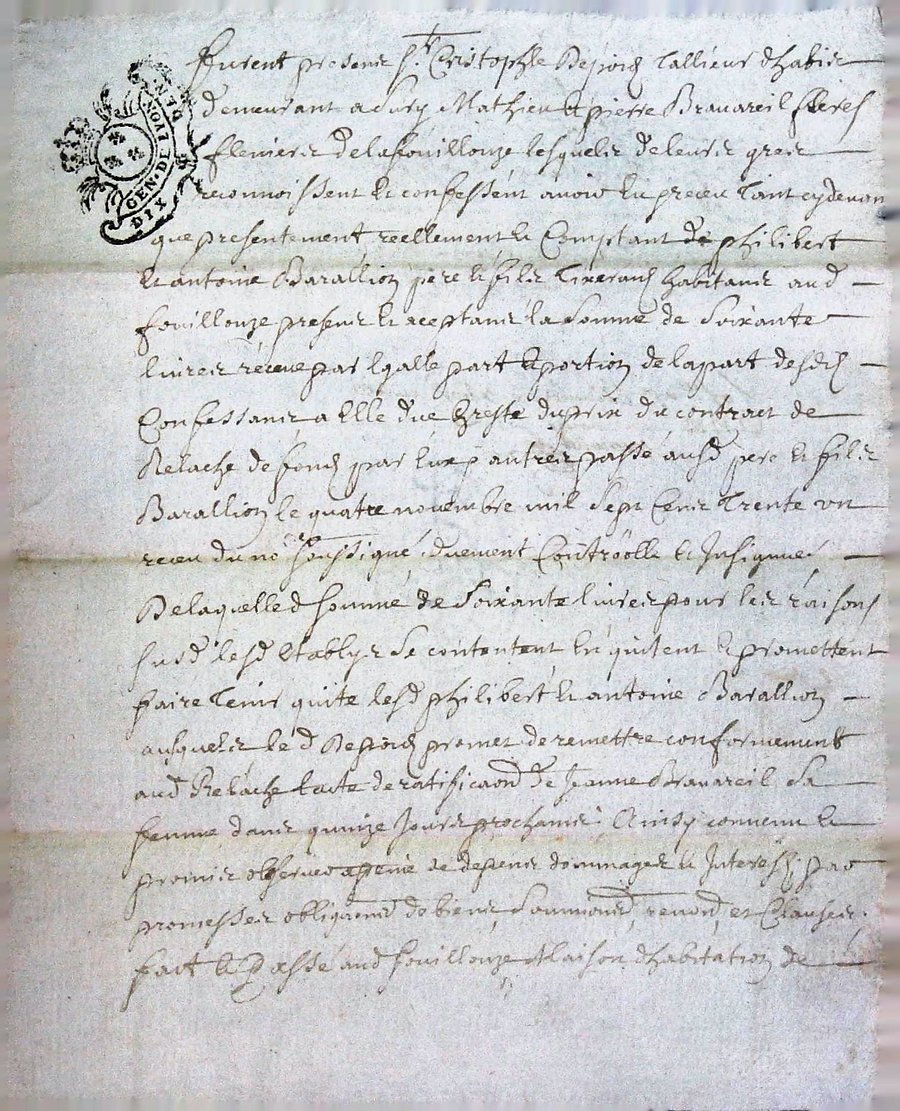 GEN. DE LYON
DIX DEN
furent presens Sr. Cristophle tallieur dhabis
demeurant a Sury Mathieu & pierre Bravareil freres
de la fouillouze lesquels de leurs grés
reconnoissent & confessent avoir eu & receu tant cydevan
que presentement reellement & Comptant de philibert
& antoine Barallion pere & fils Tixerands habitans aud
fouillouze presens & aceptans la somme de Soixante
livres receue par Egalle part & portion de la part desds
Confessans a Elle due & reste du prix du contract de
Relache de fonds par Eux & autres passé ausd pere & fils
Barallion le quatre novembre mil Sept Cens Trente un
receu du no soussigné, duement Controolle & Insignué
De laquelled somme de Soixante livres pour les raisons
susd lesd Etablys Se contentent En quitent & promettent
faire tenir quite lesd philibert & antoine Barallion
ausquels led promet de remettre conformement
aud Relache lacte de ratificaon de Jeanne Bravareil Sa
femme dans quinze Jours prochains Ainsy convenu &
promis observer a peine de depens dommages & Interest, par
promesses obligaons de biens, Soumons, renons, et Clauses.
fait & Passé aud fouillouze Maison dhabitation de